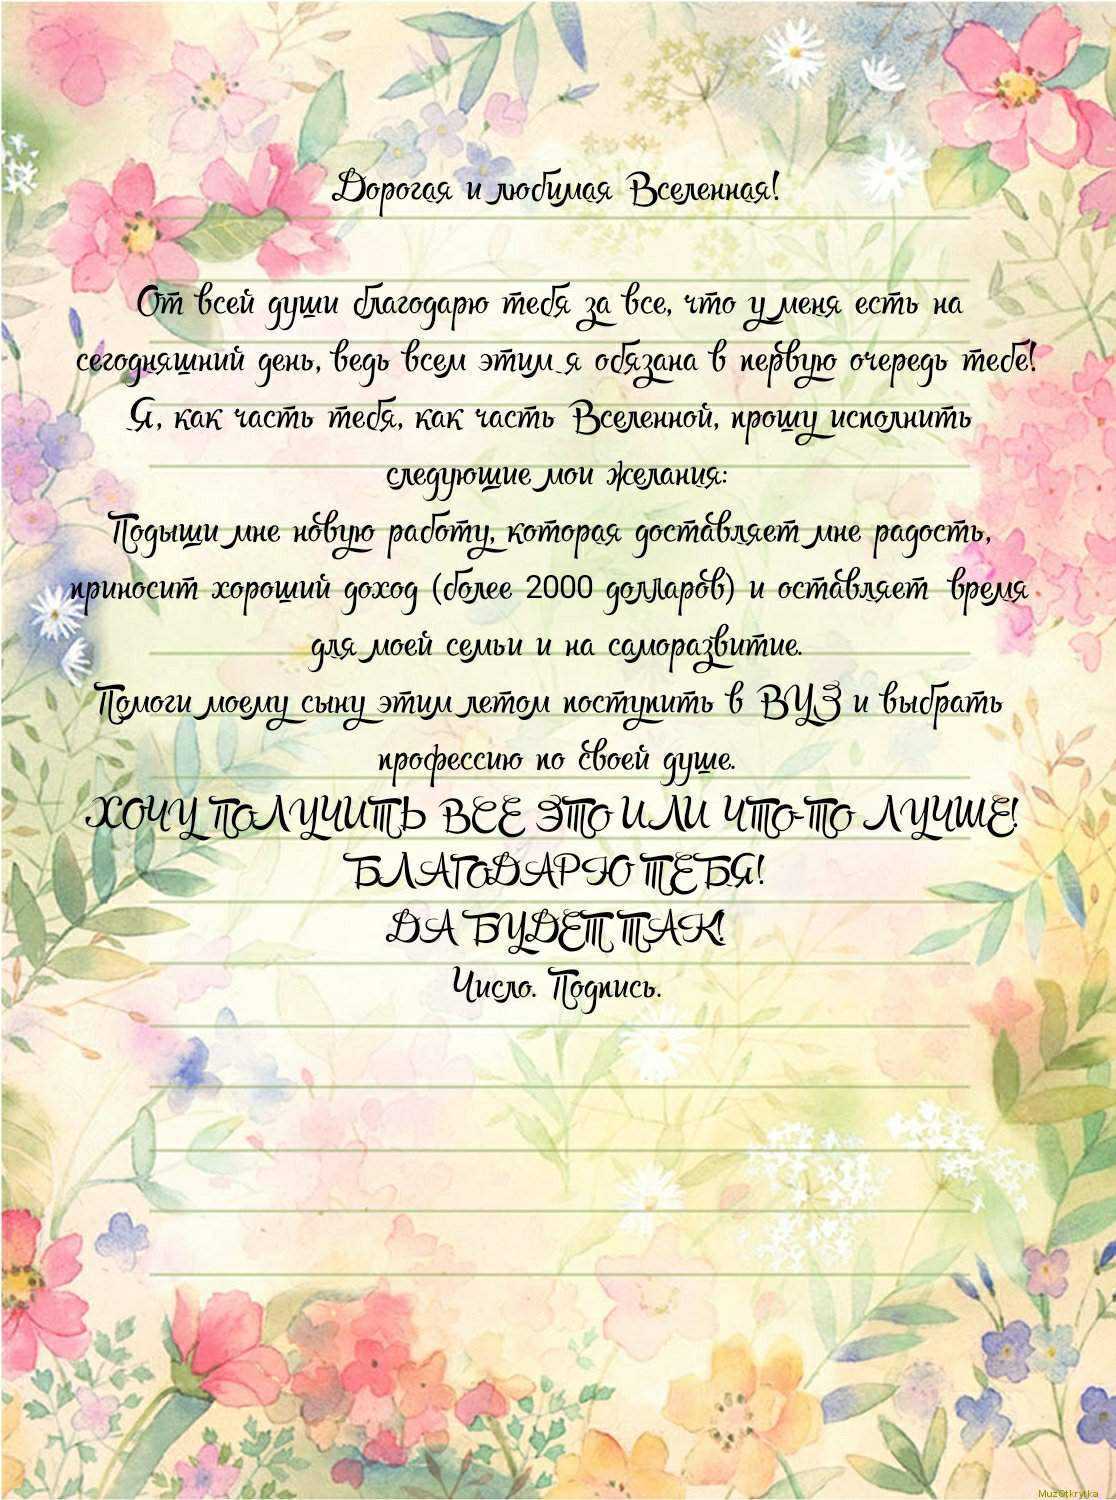 Дорогая и любимая Вселенная!
От всей души благодарю тебя за все, что у меня есть на
сегодняшний день, ведь всем этим я обязана в первую очередь тебе!
Я, как часть тебя, как часть Вселенной, прошу исполнить
следующие мои желания:
Подыщи мне новую работу, которая доставляет мне радость,
приносит хороший доход (более 2000 долларов) и оставляет время
для моей семьи и на саморазвитие.
Помоги моему сыну этим летом поступить в ВУЗ и выбрать
профессию по своей душе.
ХОЧУ ПОЛУЧИТЬ ВСЕ ЭТО ИЛИ ЧТО-ТО ЛУЧШЕ!
БЛАГОДАРЮ ТЕБЯ!
ДА БУДЕТ ТАК!
Число. Подпись.
MuzOtkrytka